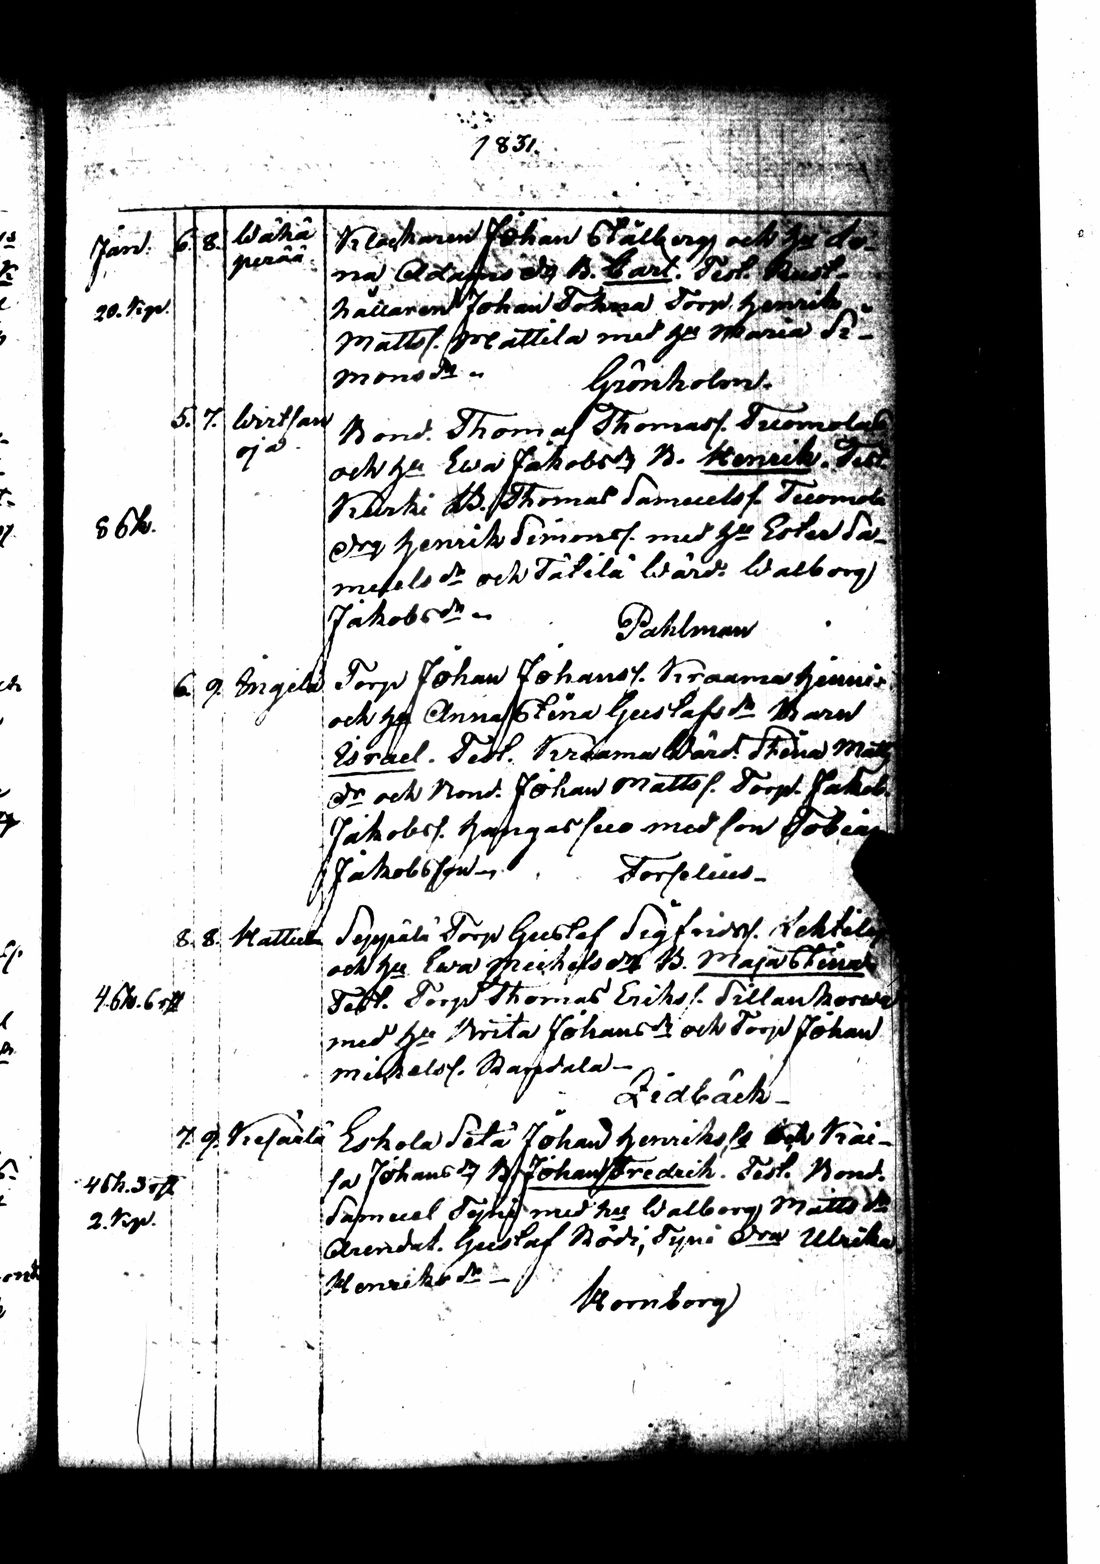 1831.
Jan. 6. 8. Wähä
perää
Klockaren Johan Stålberg och hu Le-
na Adams dr B. Carl. Test. Rust-
hållaren Johan Tokma Torp Henrik
20. Kp.
Matts. Mattila med hu Maria Si-
mons dr
Grönholm.
5. 7. Wirtsan
oja
Bond. Thomas Thomas. Tuomola
och hu Ewa Jakobs dr B. Henrik. Test.
Kurki B. Thomas Samuels. Tuomola
8 Sk.
drg Henrik Simons. med hu Ester Sa-
muels dr och Tätilä Wärd. Walborg
Jakobs dr
Pahlman
6. 9. Ingelä
Torp Johan Johans. Kraama
och hu Anna Stina Gustafs dr Barn
Esrael. Test. Kraama Wärd. Stina Matts
dr och Bond. Johan Matts. Torp. Jakob
Jakobs. Hangassuo med son Tobias
Jakobsson
Forselius
8. 8. Kattula
Seppälä Torp Gustaf Sigfrids. Lehtilä
och hu Ewa Michels dr B. Maja Stina
4 Sk. 6 rst
Test. Torp Thomas Eriks. Sillankorwa
med hu Brita Johans dr och Torp Johan
Michels. Randala
Lidbäck
7. 9.
Eskola Sjelf Johan Henriks. och Kai-
sa Johans dr B. Johan Fredrik. Test. Bond.
4 Sk. 3 rst
2. Kp.
Samuel Tyni med hu Walborg Matts dr
Arendat. Gustaf Rödi, Tyni dra Ulrika
Henriks dr
Hornborg